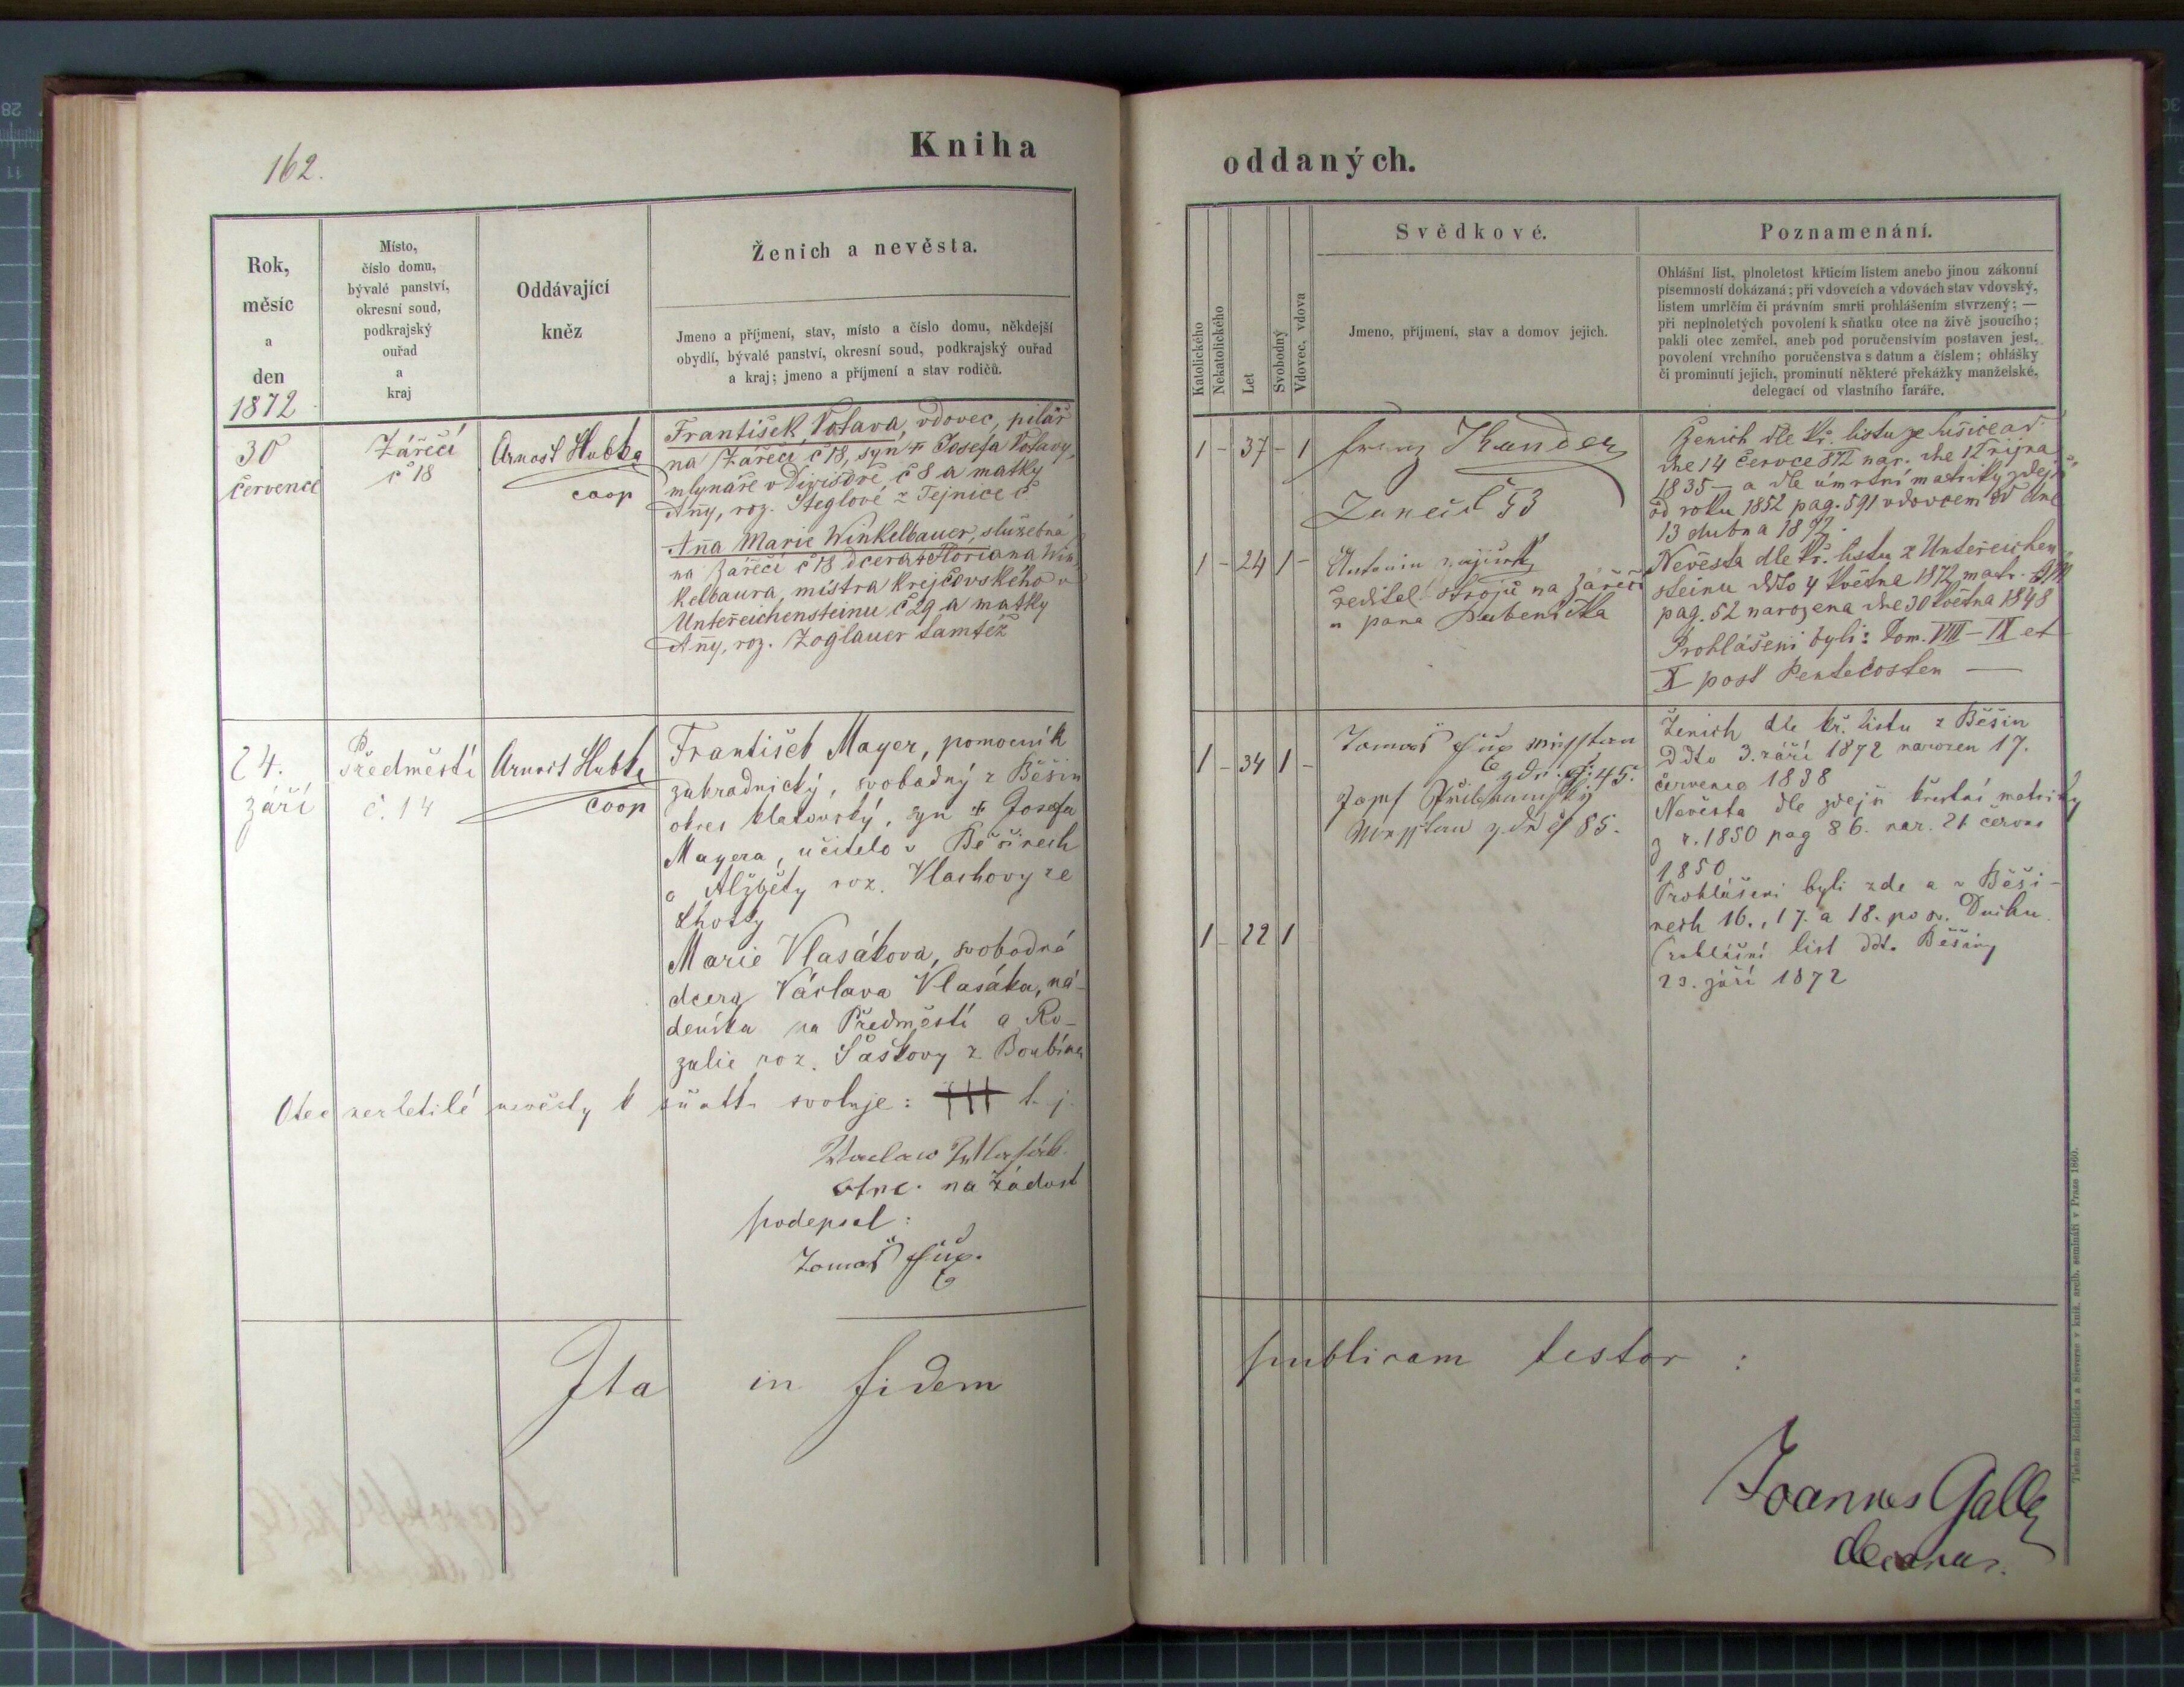 162.
Kniha
Rok,
měsíc
a
den
1872
Místo,
číslo domu,
bývalé panství,
okresní soud,
podkrajský
ouřad
a
kraj
Oddávající
kněz
Ženich a nevěsta.
Jmeno a příjmení, stav, místo a číslo domu, někdejší
obydlí, bývalé panství, okresní soud, podkrajský ouřad
a kraj; jmeno a příjmení a stav rodičů.
30
července
Zářečí
č 18
Arnošt Hubka
coop
František Votava, vdovec, pilař
na Zářečí č 18, syn † Josefa Votavy,
mlynáře v Divišově, č 8 a matky
Any, roz. Steglové z Tejnice č
Anna Marie Winkelbauer, služebná
na Zářečí č 18 dcera † Floriana Win
kelbaura, mistra krejčovského v
Unterreichensteinu č 29 a matky
Any, roz. Zoglauer tamtéž
24.
září
Předměstí
č. 14
Arnošt Hubka
coop
František Mayer, pomocník
zahradnický, svobodný z Běšin
okres klatovský, syn † Josefa
Mayera, učitele v Běšinech
a Alžběty roz. Vlachovy ze
Lhoty
Marie Vlasákova, svobodná
dcera Václava Vlasáka, ná-
deníka na Předměstí a Ro-
zalie roz. Šaškovy z Boubína
Otec nezletilé nevěsty k sňatku svoluje: ††† t. j.
Waclaw Wlasák.
otec. na žádost
podepsal:
Tomáš
Ita in fidem
oddaných.
Katolického
Nekatolického
Let
Svobodný
Vdovec, vdova
Svědkové.
Jmeno, příjmení, stav a domov jejich.
Poznamenání.
Ohlášní list, plnoletost křticím listem anebo jinou zákonní
písemností dokázaná; při vdovcích a vdovách stav vdovský,
listem umrlčím či právním smrti prohlášením stvrzený; —
při neplnoletých povolení k sňatku otce na živě jsoucího;
pakli otec zemřel, aneb pod poručenstvím postaven jest,
povolení vrchního poručenstva s datum a číslem; ohlášky
či prominutí jejich, prominutí některé překážky manželské,
delegací od vlastního faráře.
1 - 37 - 1
Franz
č 53
1 - 24 1 -
Antonín
ředitel strojů na Zářečí
u pana
Ženich dle kř. listu ze
dne 14 července 872 nar. dne 12 října
1835 — a dle úmrtní matriky zdejší
od roku 1852 pag. 591 vdovcem od dne
13 dubna 1872.
Nevěsta dle kř. listu z Unterreichen
steinu ddto 4 května 1872 matr.
pag. 52 narozena dne 30 května 1848
Prohlášeni byli: Dom. VIII – IX et
X post Pentecosten —
1 - 34 1 -
Tomáš
zdr. čs 45.
Josef
zdr čs 85.
1 - 22 1
Ženich dle kř. listu z Běšin
ddto 3. září 1872 narozen 17.
července 1838
Nevěsta dle zdejší křestní matriky
z r. 1850 pag 86. nar. 21 června
1850
Prohlášeni byli zde a v Běši-
nech 16., 17. a 18. po sv. Duchu.
Ohlášní list ddto. Běšiny
23. září 1872
publicam testor :
Joannes Galla
decanus.
Tiskem Rohlíčka a Sieverse v kníž. arcib. semináři v Praze 1860.